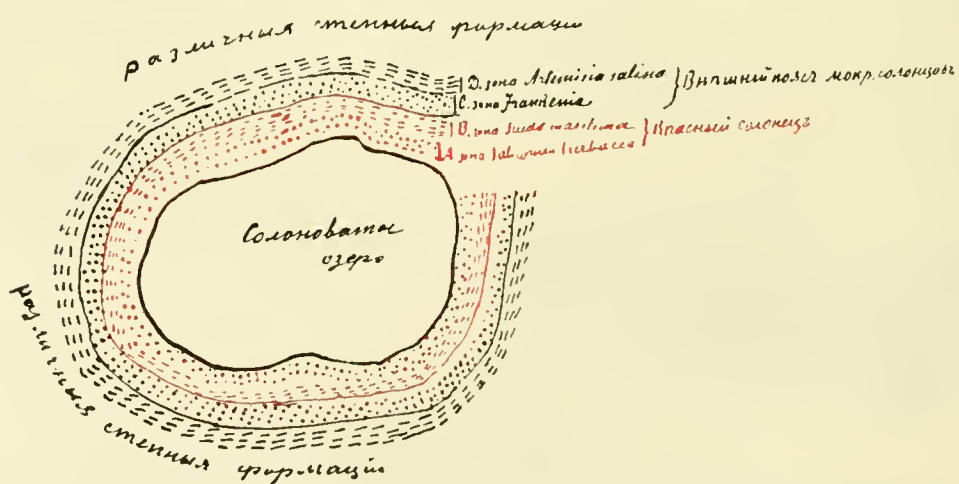 различныя степныя формаціи
D. зона Artemisia salina
C. зона Frankenia
Внѣшній поясъ мокр. солонцовъ
B. зона Sueda maritima
A зона Salicornia herbacea
Красный солонецъ
Солоноватое
озеро
различныя степныя формаціи